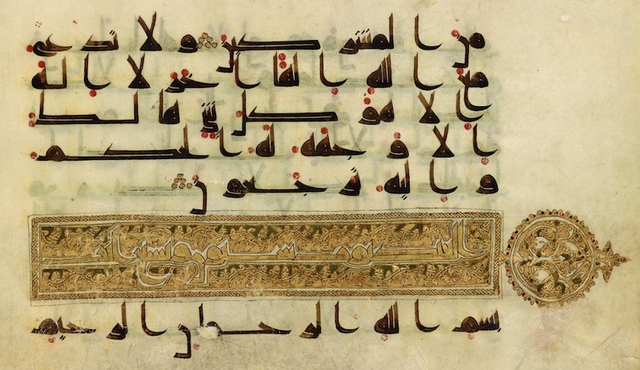 من المشركين ولا تدع
مع الله الها اخر لا اله
الا هو كل شى هالك
الا وجهه له الحكم
واليه ترجعون
العنكبوت ستون وتسع
بسم الله الرحمن الرحيم